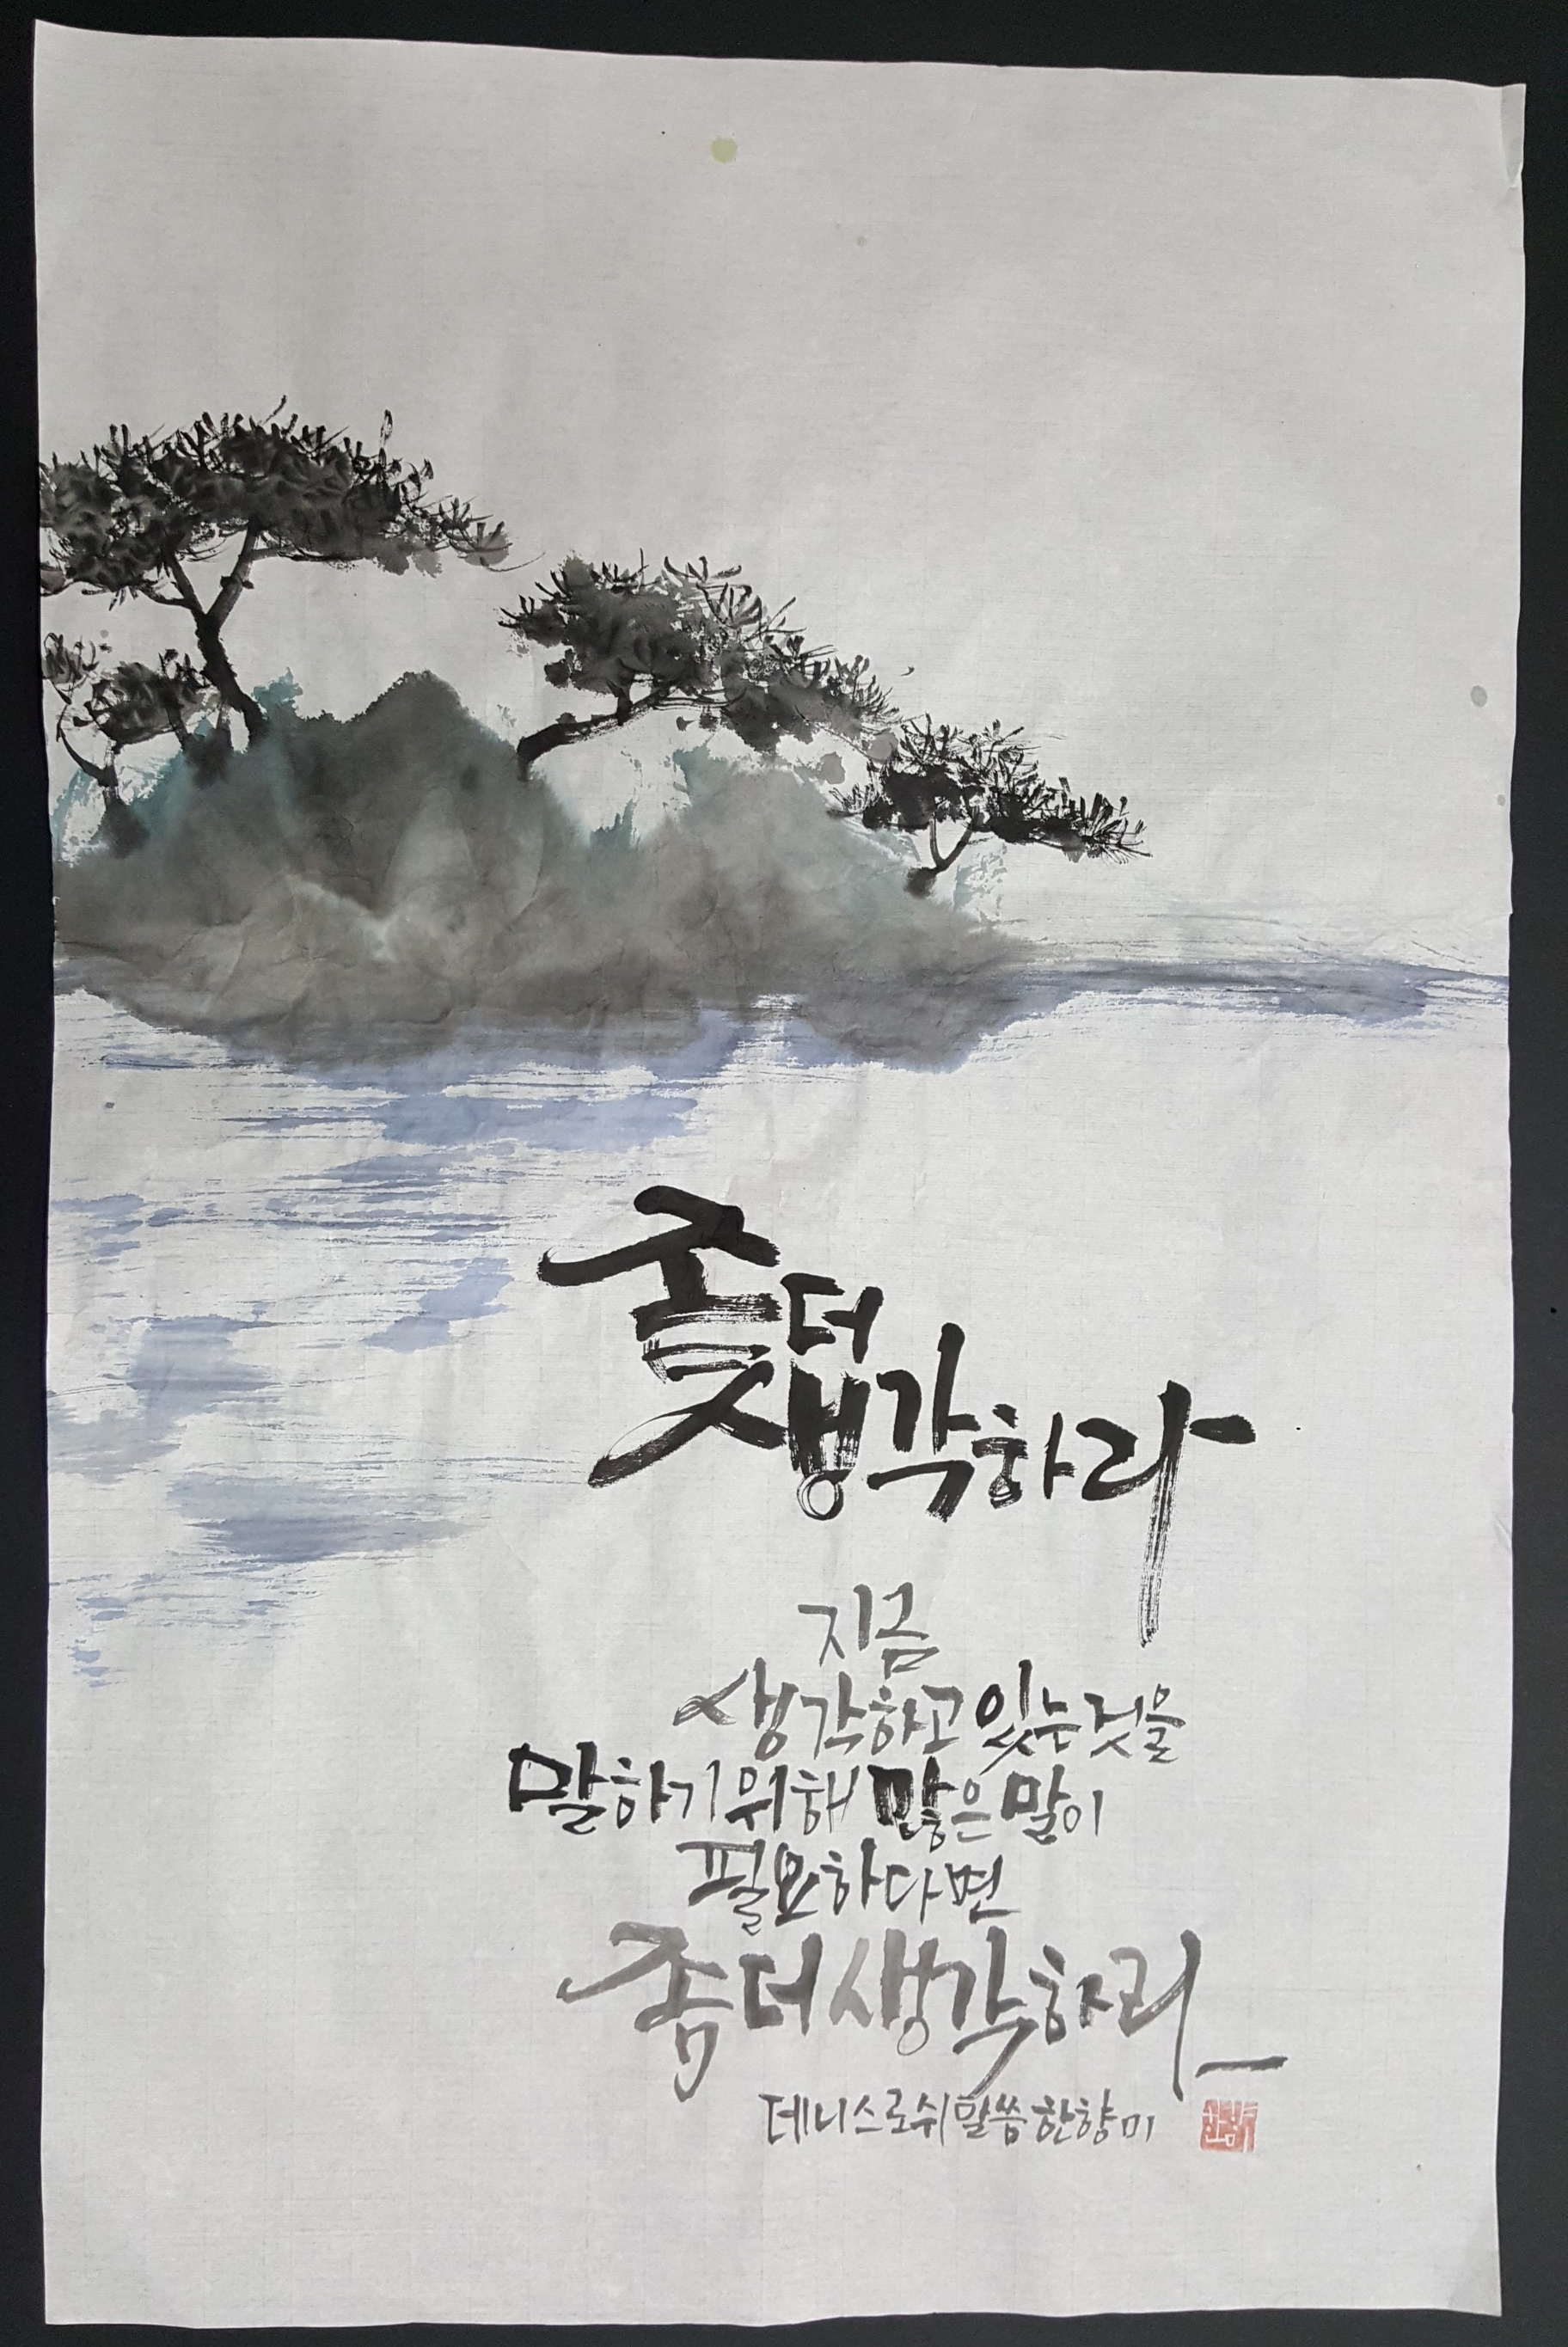 좀 더
생각하라
지금
생각하고 있는 것을
말하기 위해 많은 말이
필요하다면
좀 더 생각하라
데니스 로쉬 말씀 한향미